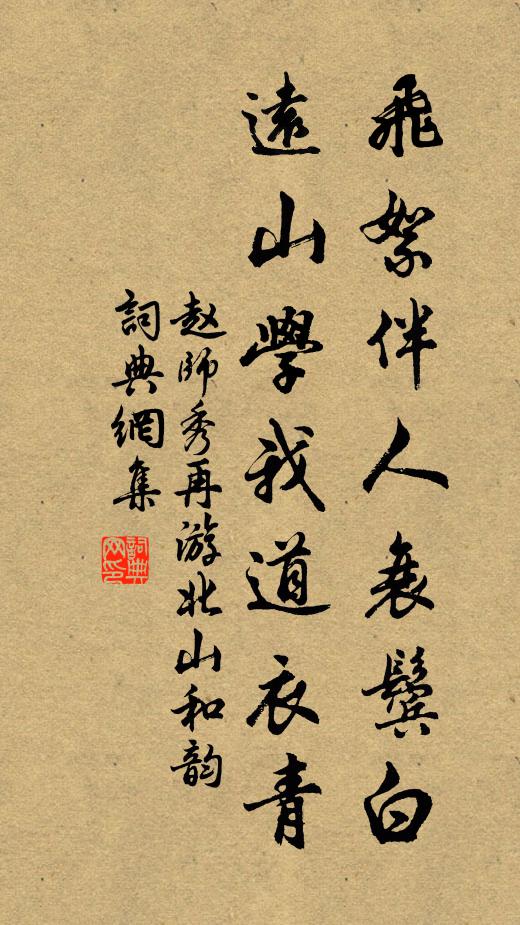 飛絮伴人衰鬓白
遠山學我道衣青
赵師秀再游北山和韵
詞典網集
詞典网印